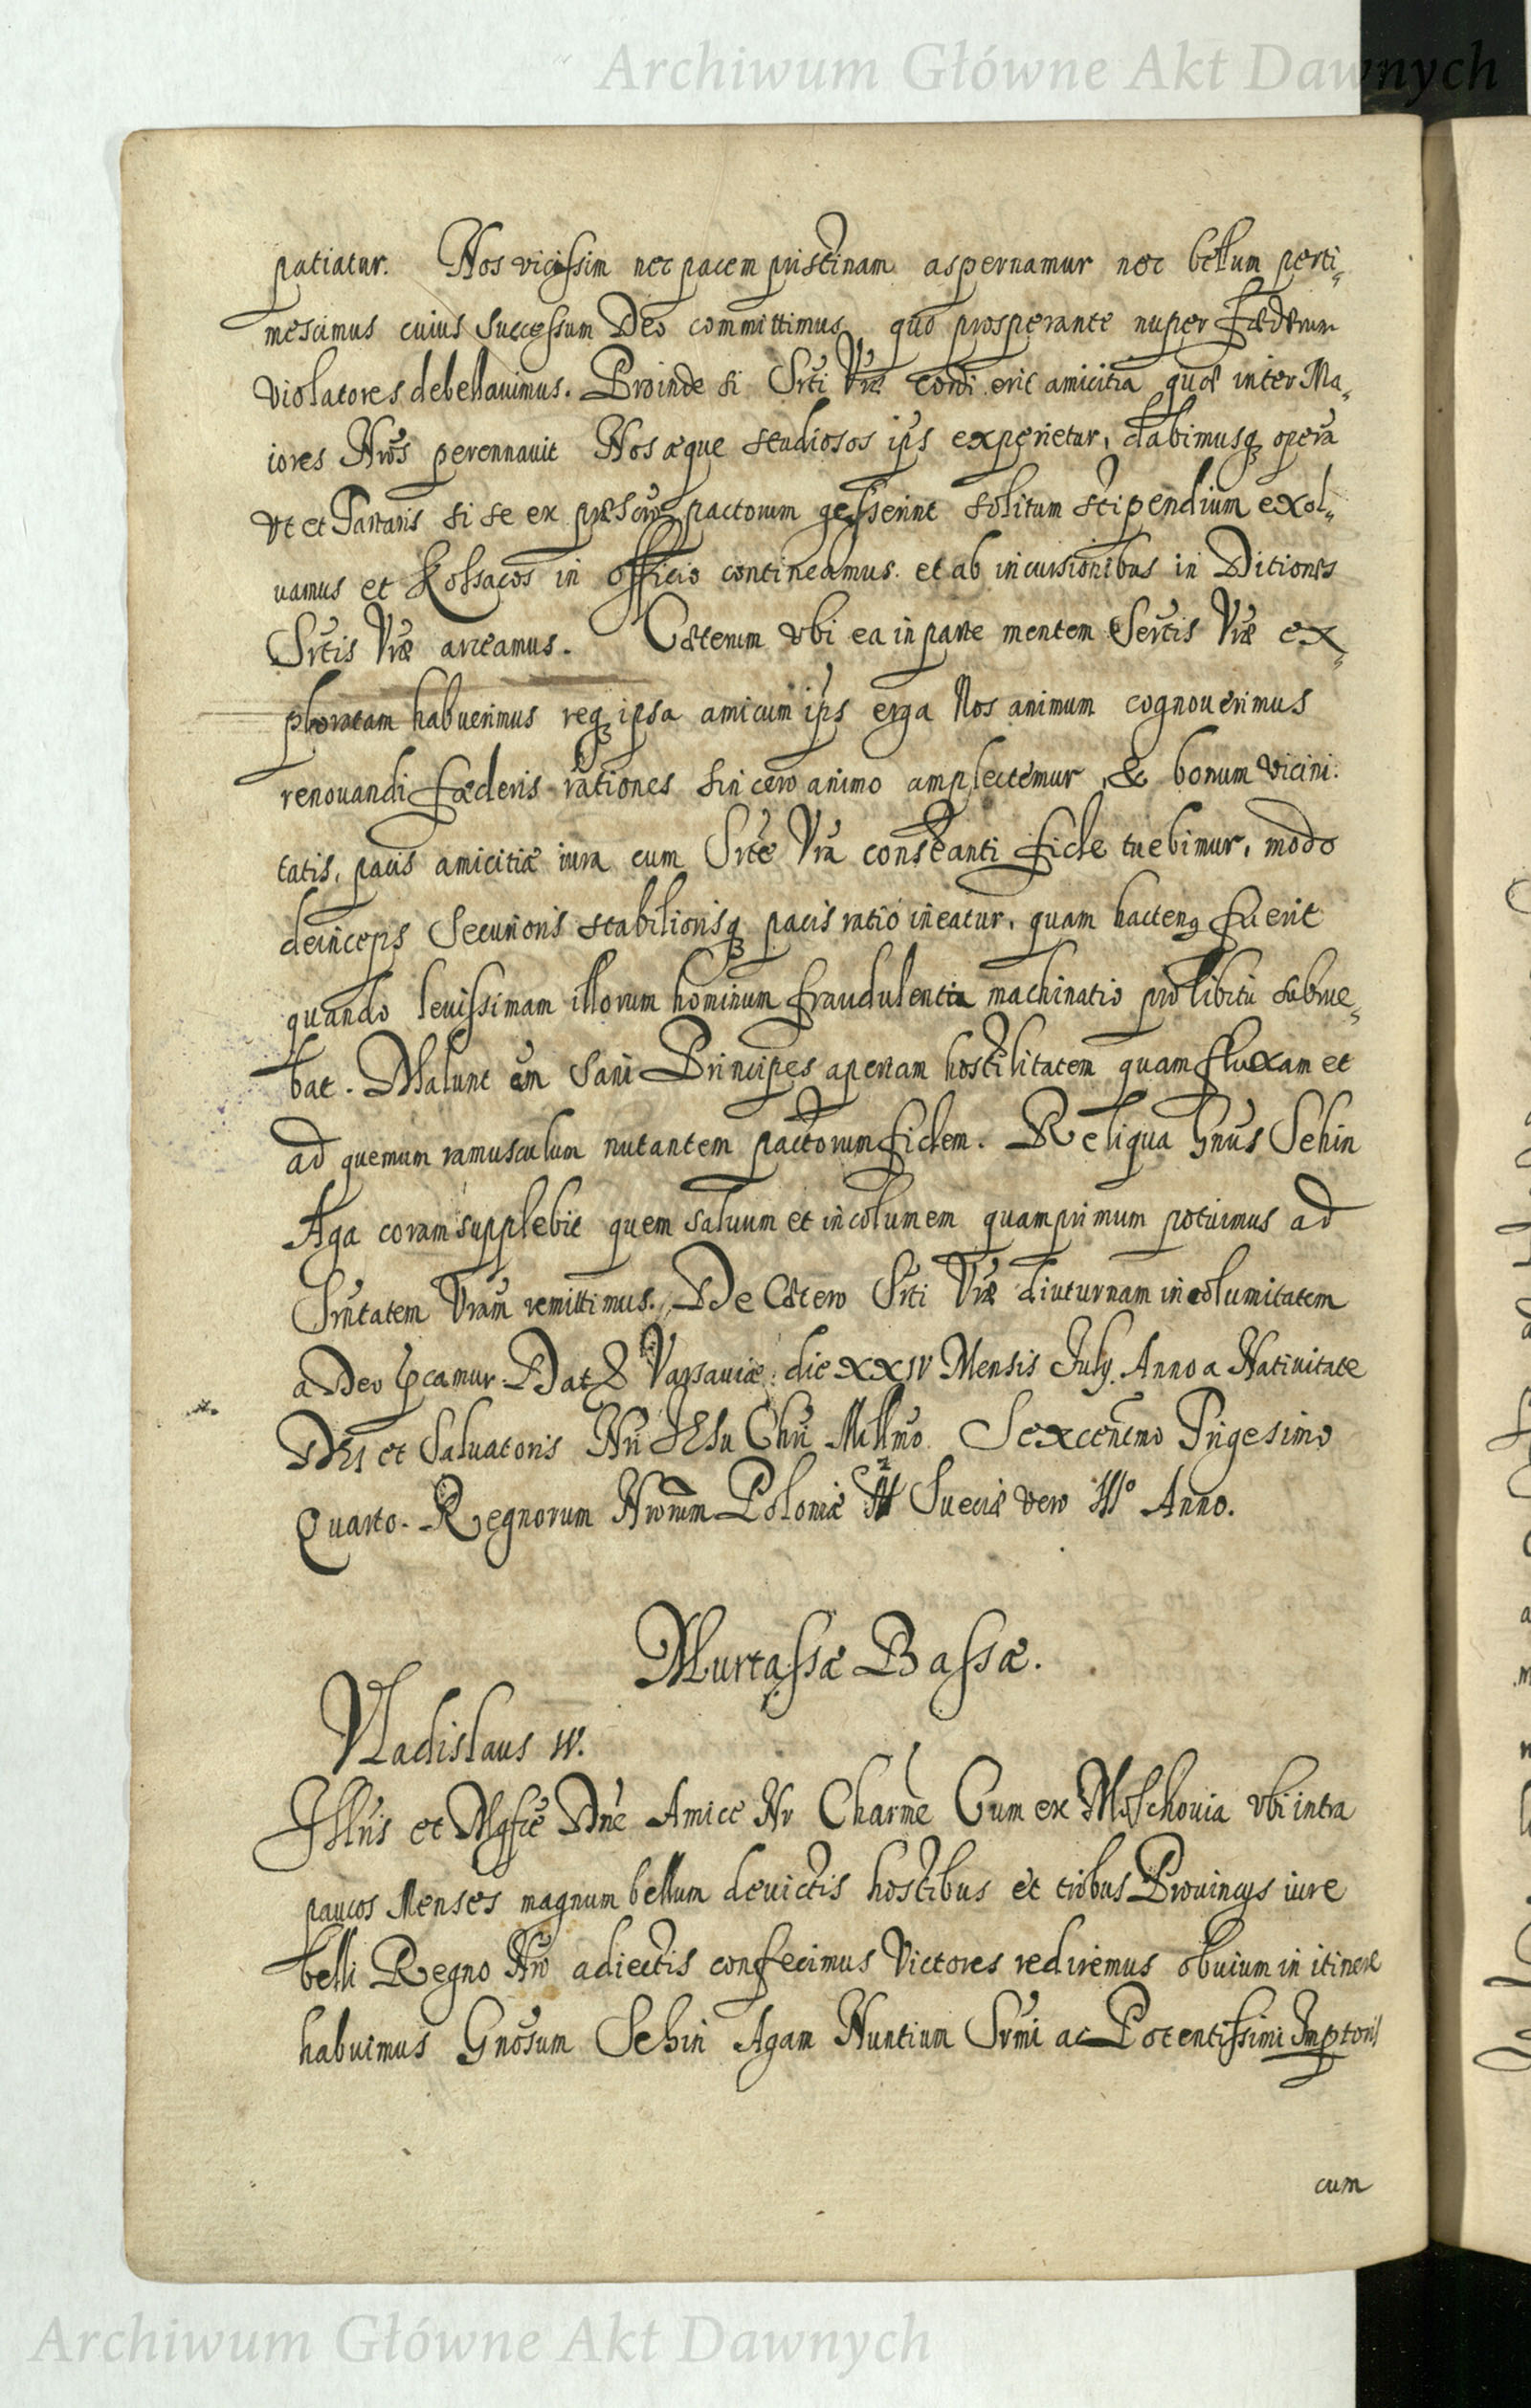 Archiwum Główne Akt Dawnych
patiatur. Nos vicissim nec pacem pristinam aspernamur nec bellum perti-
mescimus cuius successum Deo committimus, quo prosperante nuper fœderum
violatores debellauimus. Proinde si Srti Vræ cordi erit amicitia quæ inter Ma-
iores Nros perennauit Nos æque studiosos ips experietur, dabimusq opera
vt et Tartaris si se ex præscrip pactorum gesserint solitum stipendium exol-
uamus et Kossacos in officio contineamus. et ab incursionibus in Ditiones
Srtis Vræ arceamus. Cæterum vbi ea in parte mentem Sertis Vræ ex-
ploratam habuerimus reqz ipsa amicum ips erga Nos animum cognouerimus
renouandi fœderis rationes sincero animo amplectemur, & bonum vicini-
tatis, pacis amicitiæ iura cum Srte Vra constanti fide tuebimur, modo
deinceps securioris stabiliorisq pacis ratio ineatur, quam hacteng fuerit
quando leuissimam illorum hominum fraudulentia machinatio pro libitu subrue-
bat. Malunt em sani Principes apertam hostilitatem quam fluxam et
ad quemum ramusculum nutantem pactorum fidem. Reliqua Gnus Sehin
Aga coram supplebit quem saluum et incolumem quamprimum potuimus ad
Srntatem Vram remittimus. De Cætero Srti Vræ diuturnam incolumitatem
a Deo pcamur. Dat Varsauiæ die XXIV Mensis July. Anno a Natiuitate
Dei et Saluatoris Nri IESu Chri Millmo Sexcenmo Trigesimo
Quarto. Regnorum Nrorum Poloniæ 2 Sueciæ vero IIIº Anno.
Murtassæ Bassæ.
Vladislaus IV.
Illris et Mgfce Dne Amice Nr Charme Cum ex Moschouia vbi intra
paucos Menses magnum bellum deuictis hostibus et tribus Prouincys iure
belli Regno Nro adiectis confecimus Victores rediremus obuium in itinere
habuimus Gnosum Sehin Agam Nuntium Srmi ac Potentissimi Imptoris
cum
Archiwum Główne Akt Dawnych